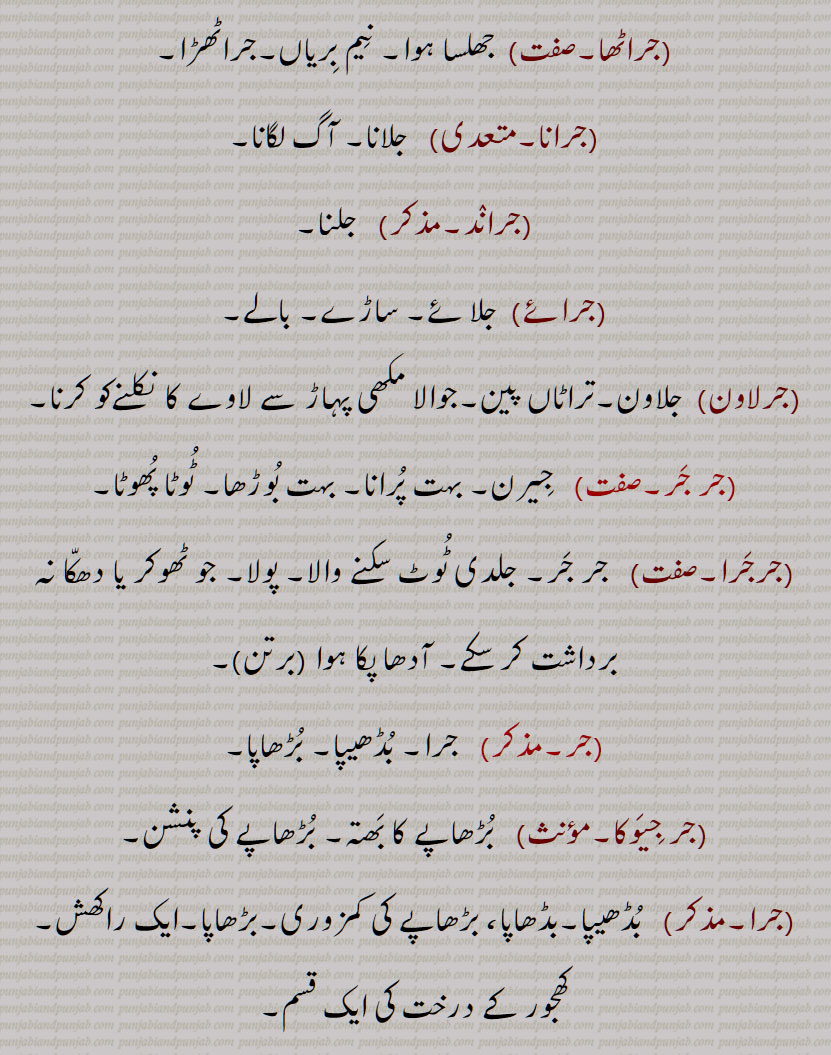 (جراٹھا۔صفت) جھلسا ہوا۔ نِیم بِریاں۔جراٹھڑا۔
(جرانا۔متعدی) جلانا۔ آگ لگانا۔
(جرانْد۔مذکر) جلنا۔
(جرائے) جلائے۔ ساڑے۔ بالے۔
(جرلاون) جلاون۔تراٹاں پین۔جوالا مکھی پہاڑ سے لاوے کا نکلنےکو کرنا۔
(جر جَر۔صفت) جِیرن۔ بہت پُرانا۔ بہت بُوڑھا۔ ٹُوٹا پُھوٹا۔
(جرجَرا۔صفت) جر جَر۔ جلدی ٹُوٹ سکنے والا۔ پولا۔ جو ٹھوکر یا دھکّا نہ
برداشت کر سکے۔ آدھا پکا ہوا (برتن)۔
(جر۔مذکر) جرا۔ بُڈھیپا۔ بُڑھاپا۔
(جر جِیَوکا۔مؤنث) بُڑھاپے کا بَھتہ۔ بُڑھاپے کی پنشن۔
(جرا۔مذکر) بُڈھیپا۔بڈھاپا، بڑھاپے کی کمزوری۔بڑھاپا۔ایک راکھش۔
کھجور کے درخت کی ایک قسم۔
punjabiandpunjab.com